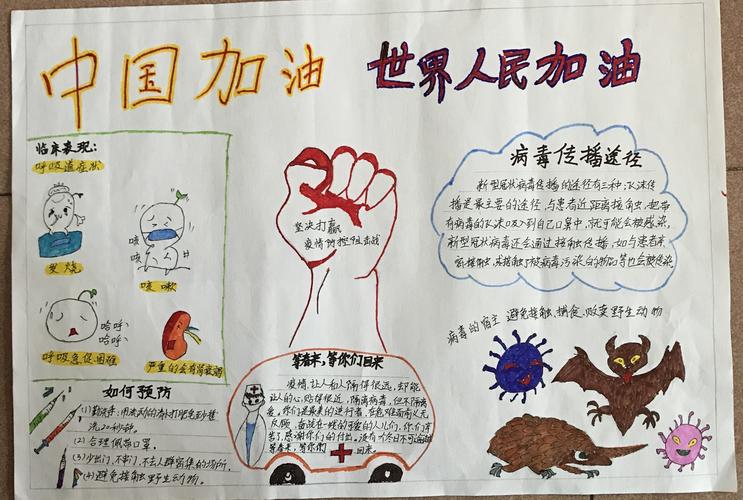 中国加油 世界人民加油
临床表现:
呼吸道症状
发烧
咳
咳
咳嗽
哈呼、
哈呼、
呼吸急促困难
严重的会有肾衰竭
坚决打赢
疫情防控阻击战
病毒传播途径
新型冠状病毒传播的途径有三种,飞沫传
播是最主要的途径,与患者近距离接触,把带
有病毒的飞沫吸入到自己口鼻中,就可能会被感染,
新型冠状病毒还会通过接触传播,如与患者亲
密接触,或接触了被病毒污染的物品等也会被传染
病毒的宿主 避免接触、捕食、贩卖野生动物
如何预防
(1)勤洗手:用流动的水打肥皂至少搓
洗20秒钟.
(2)合理佩戴口罩.
(3)少出门,不串门,不去人群密集的场所.
(4)避免接触野生动物.
等春来,等你们回来
疫情,让人和人隔得很远,却能
让人的心,贴得很近,隔离病毒,但不隔离
爱,你们是最美的逆行者,在危难面前义无
反顾,奋战在一线的可爱的人儿们,你们辛
苦了,感谢你们的付出,没有
等春来,等你们 回来.